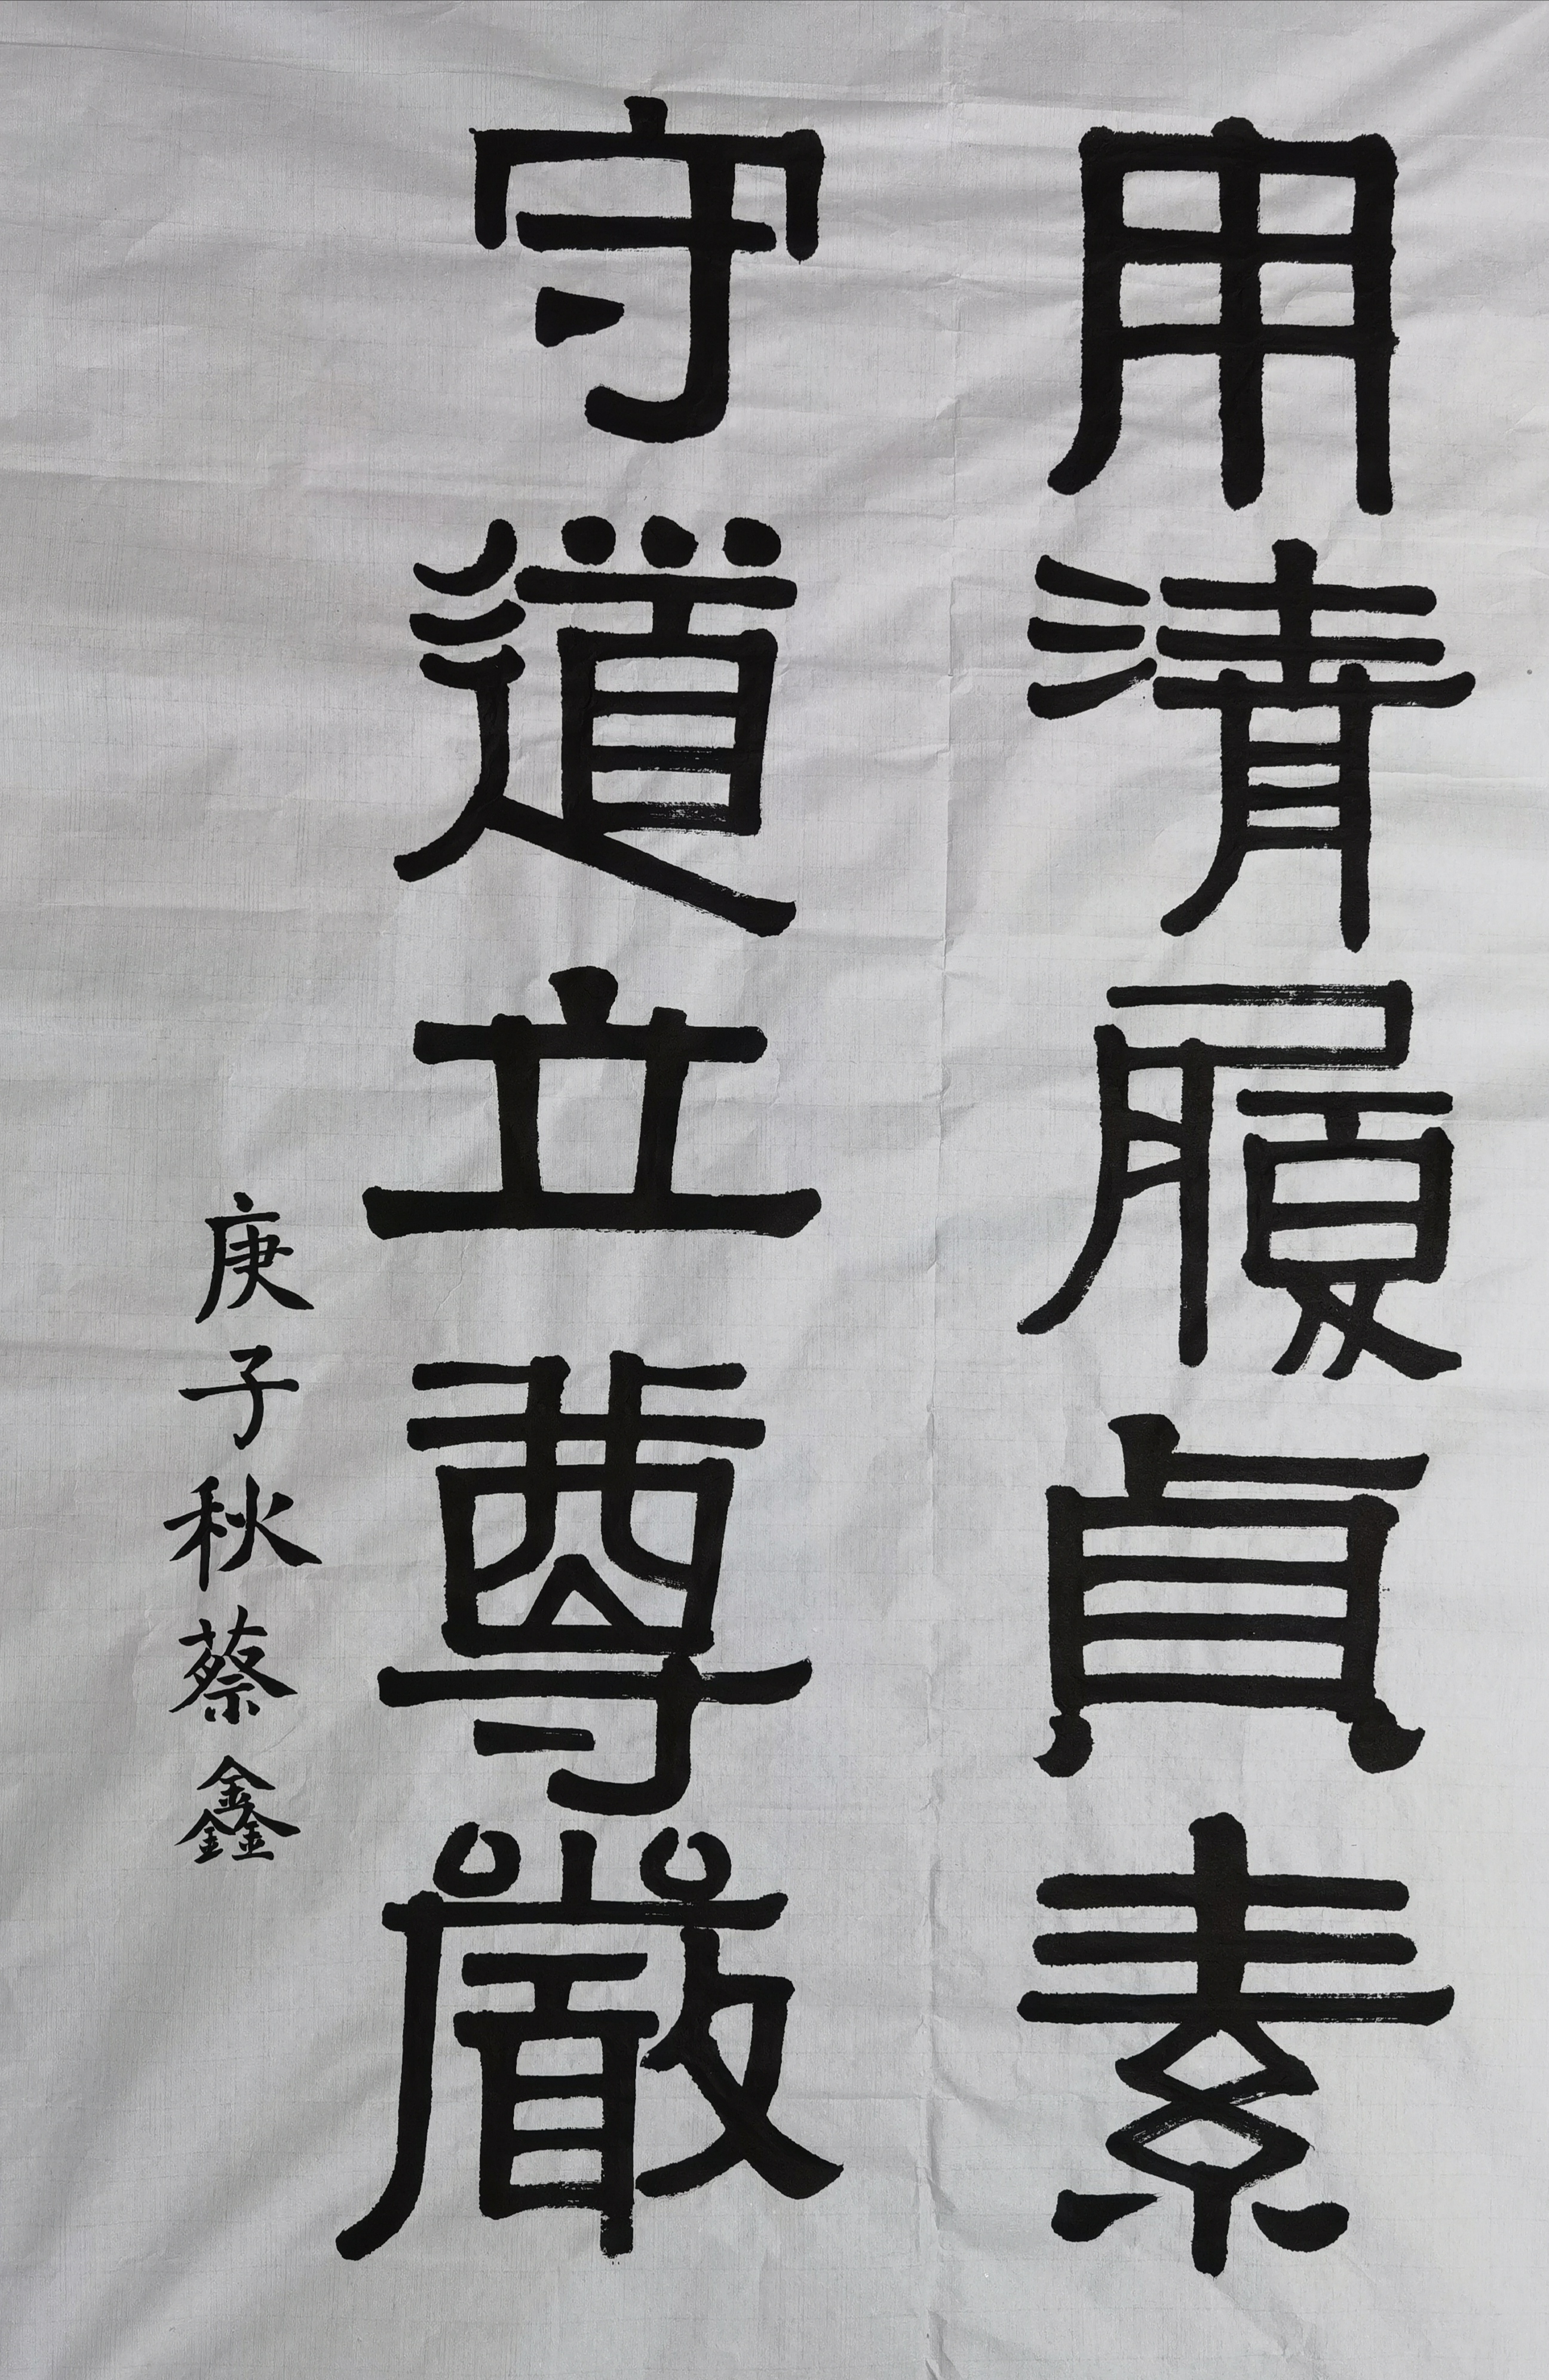 用清履貞素
守道立尊嚴
庚子秋蔡鑫